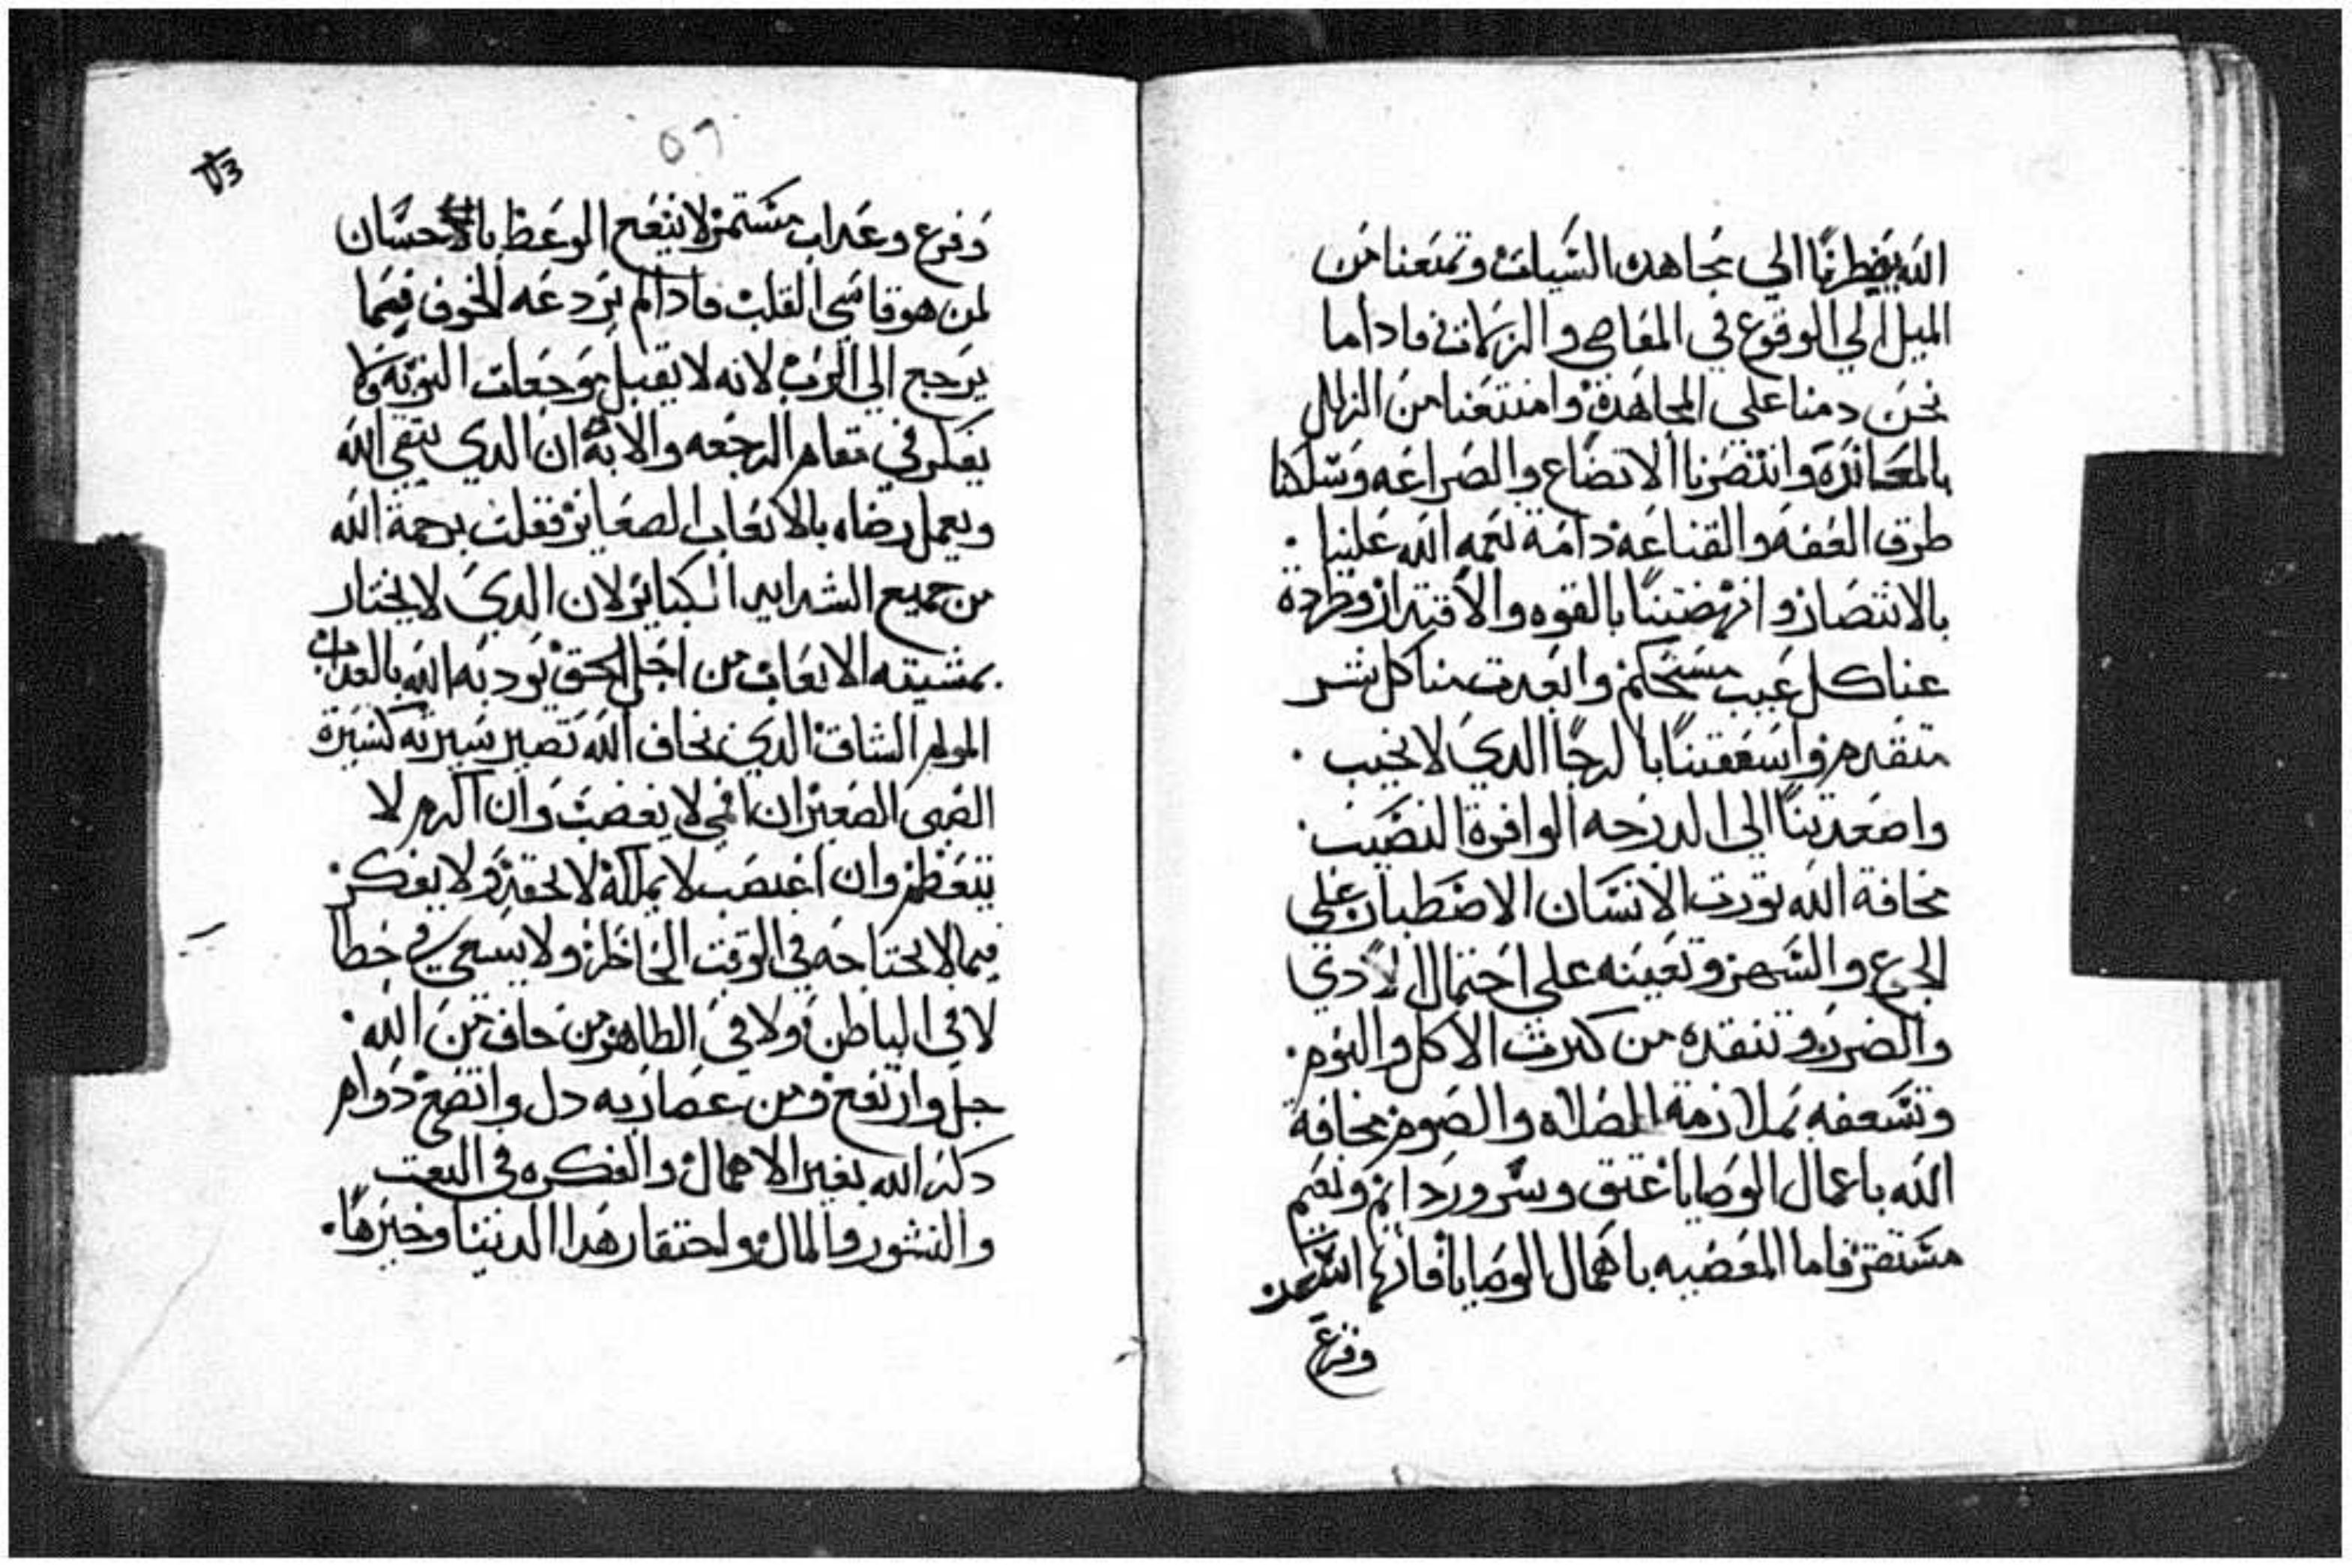 الله يضطرنا الي مجاهده السيات وتمنعنا من
الميل الي الوقوع في المعاصي والزلات فاداما
نحن دمنا علي المجاهدة وامتنعنا من الزلل
وانتصرنا الاتضاع والضراعه وسلكنا
طرق العفه والقناعه دامة نعمه الله علينا .
بالانتصار وانهضتنا بالقوه والاقتدار وطردة
عنا كل عيب مستحكم وابعدت منا كل شر
متقدم واسعفتنا بالرجا الدي لا يخيب .
واصعدتنا الي الدرجه الوافرة النصيب .
مخافة الله تورت الانسان الاصطبار علي
الجوع والسهر وتعينه علي احتمال الادي
والضرر وتنقده من كترت الاكل والنوم .
وتسعفه بملازمة الصلاه والصوم مخافة
الله باعمال الوصايا عتق وسرور دايم ونعيم
مستقر فاما المعصيه باهمال الوصايا فانها
وفزع
٥٦
وفزع وعداب مستمر لا ينفع الوعظ بالاحسان
لمن هو قاسي القلب فادالم يردعه الخوف فيما
يرجع الي الرب لانه لا يقبل موجعات التوبه ولا
يفكر في مقام الرجعه والابه ان الدي يتقي الله
ويعمل رضاه بالاتعاب الصغاير فقلت برحمة الله
من جميع الشدايد الكباير لان الدي لا يختار
بمشيته الاتعاب من اجل الحق يودبه الله بالعداب
المولم الشاق الدي يخاف الله تصير سيرته كسيرة
الصبي الصغير ان انمي لا يغضب وان اكرم لا
يتعظم وان اغتصب لا يحقد ولا يفكر .
فيما لا يحتاجه في الوقت الحاظر ولا يسعي في خطا
لا في الباطن ولا في الظاهر من خاف من الله .
جل وارتفع ومن عصا ربه دل واتضع دوام
دكر الله بغير الاهمال والفكره في البعت
والنشور والمال واحتقار هدا الدنيا وخيرها .